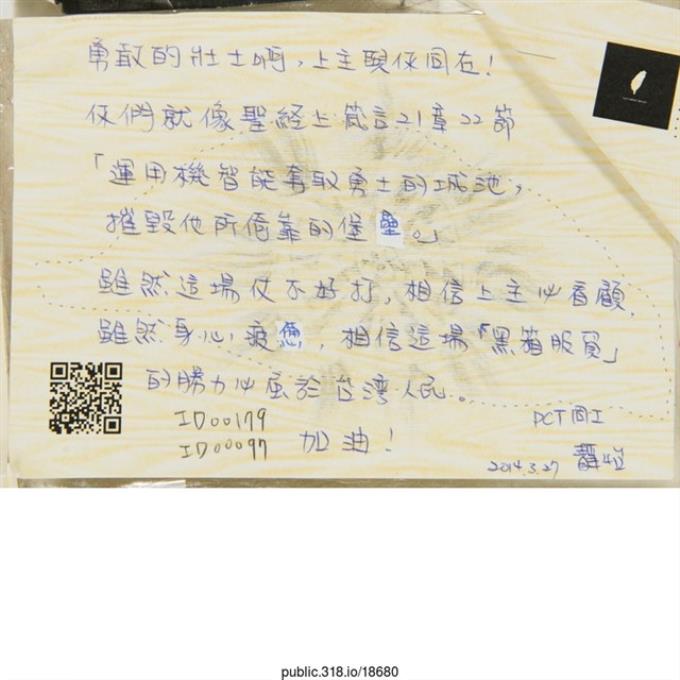 勇敢的壯士啊，上主與你同在！
你們就像聖經上箴言21章22節
「運用機智能奪取勇士的城池，
摧毀他所倚靠的堡壘。」
雖然這場仗不好打，相信上主必看顧，
雖然身心疲憊，相信這場「黑箱服貿」
的勝力必屬於台灣人民。
ID00179
ID00097
加油！
PCT同工
2014.3.27
public.318.io/18680